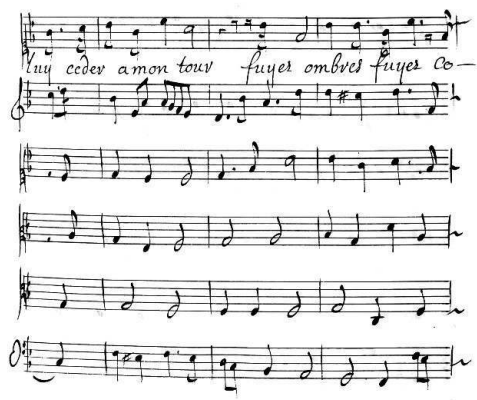 luy ceder amon tour fuyez ombres fuyez co—